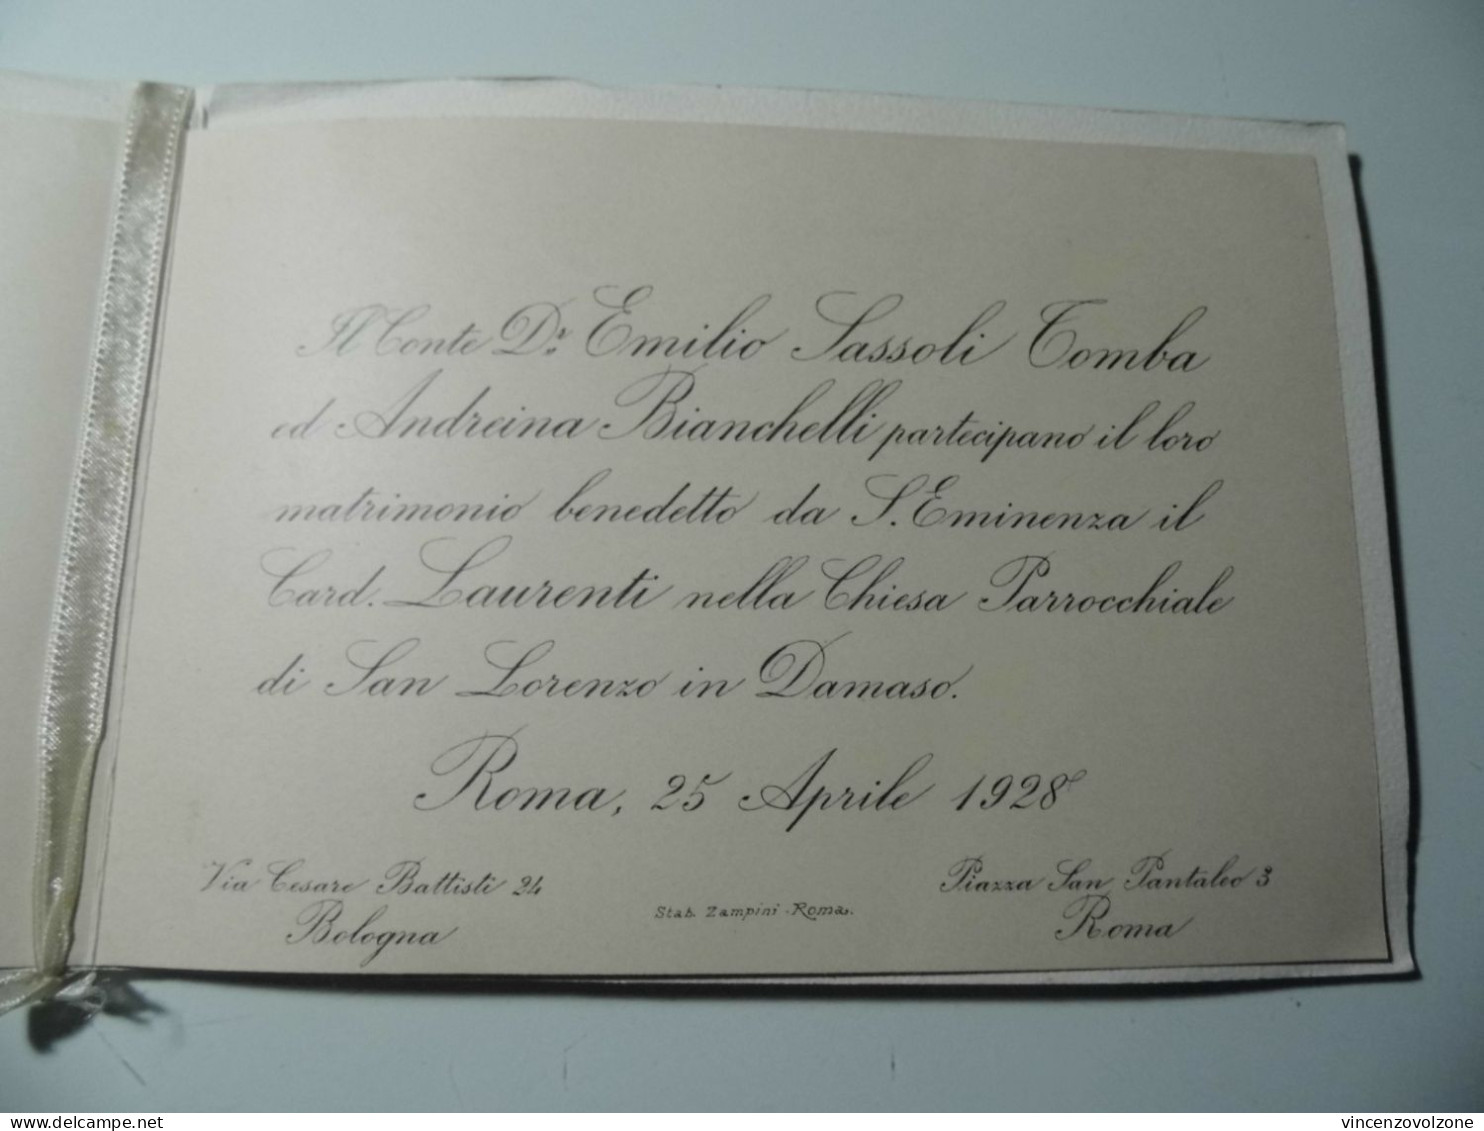 Il Conte Dr. Emilio Sassoli Tomba
ed Andreina Bianchelli partecipano il loro
matrimonio benedetto da S. Eminenza il
Card. Laurenti nella Chiesa Parrocchiale
di San Lorenzo in Damaso.
Roma, 25 Aprile 1928
Via Cesare Battisti 24
Bologna
Stab. Zampini - Roma.
Piazza San Pantaleo 3
Roma
delcampe.net
vincenzovolzone